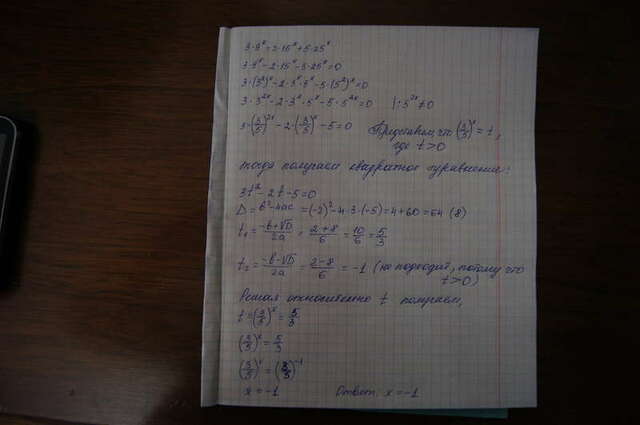 3·9ˣ=2·15ˣ+5·25ˣ
3·9ˣ-2·15ˣ-5·25ˣ=0
3·(3²)ˣ-2·3ˣ·5ˣ-5·(5²)ˣ=0
3·3²ˣ-2·3ˣ·5ˣ-5·5²ˣ=0 |:5²ˣ≠0
3·(3/5)²ˣ-2·(3/5)ˣ-5=0 Представим, что (3/5)ˣ=t,
где t>0
тогда получаем квадратное уравнение:
3t²-2t-5=0
D=b²-4ac=(-2)²-4·3·(-5)=4+60=64 (8)
t₁=(-b+√D)/2a=(2+8)/6=10/6=5/3
t₂=(-b-√D)/2a=(2-8)/6=-1 (не подходит, потому что
t>0)
Решая относительно t получаем,
t=(3/5)ˣ=5/3
(3/5)ˣ=5/3
(3/5)ˣ=(3/5)⁻¹
x=-1 Ответ: x=-1